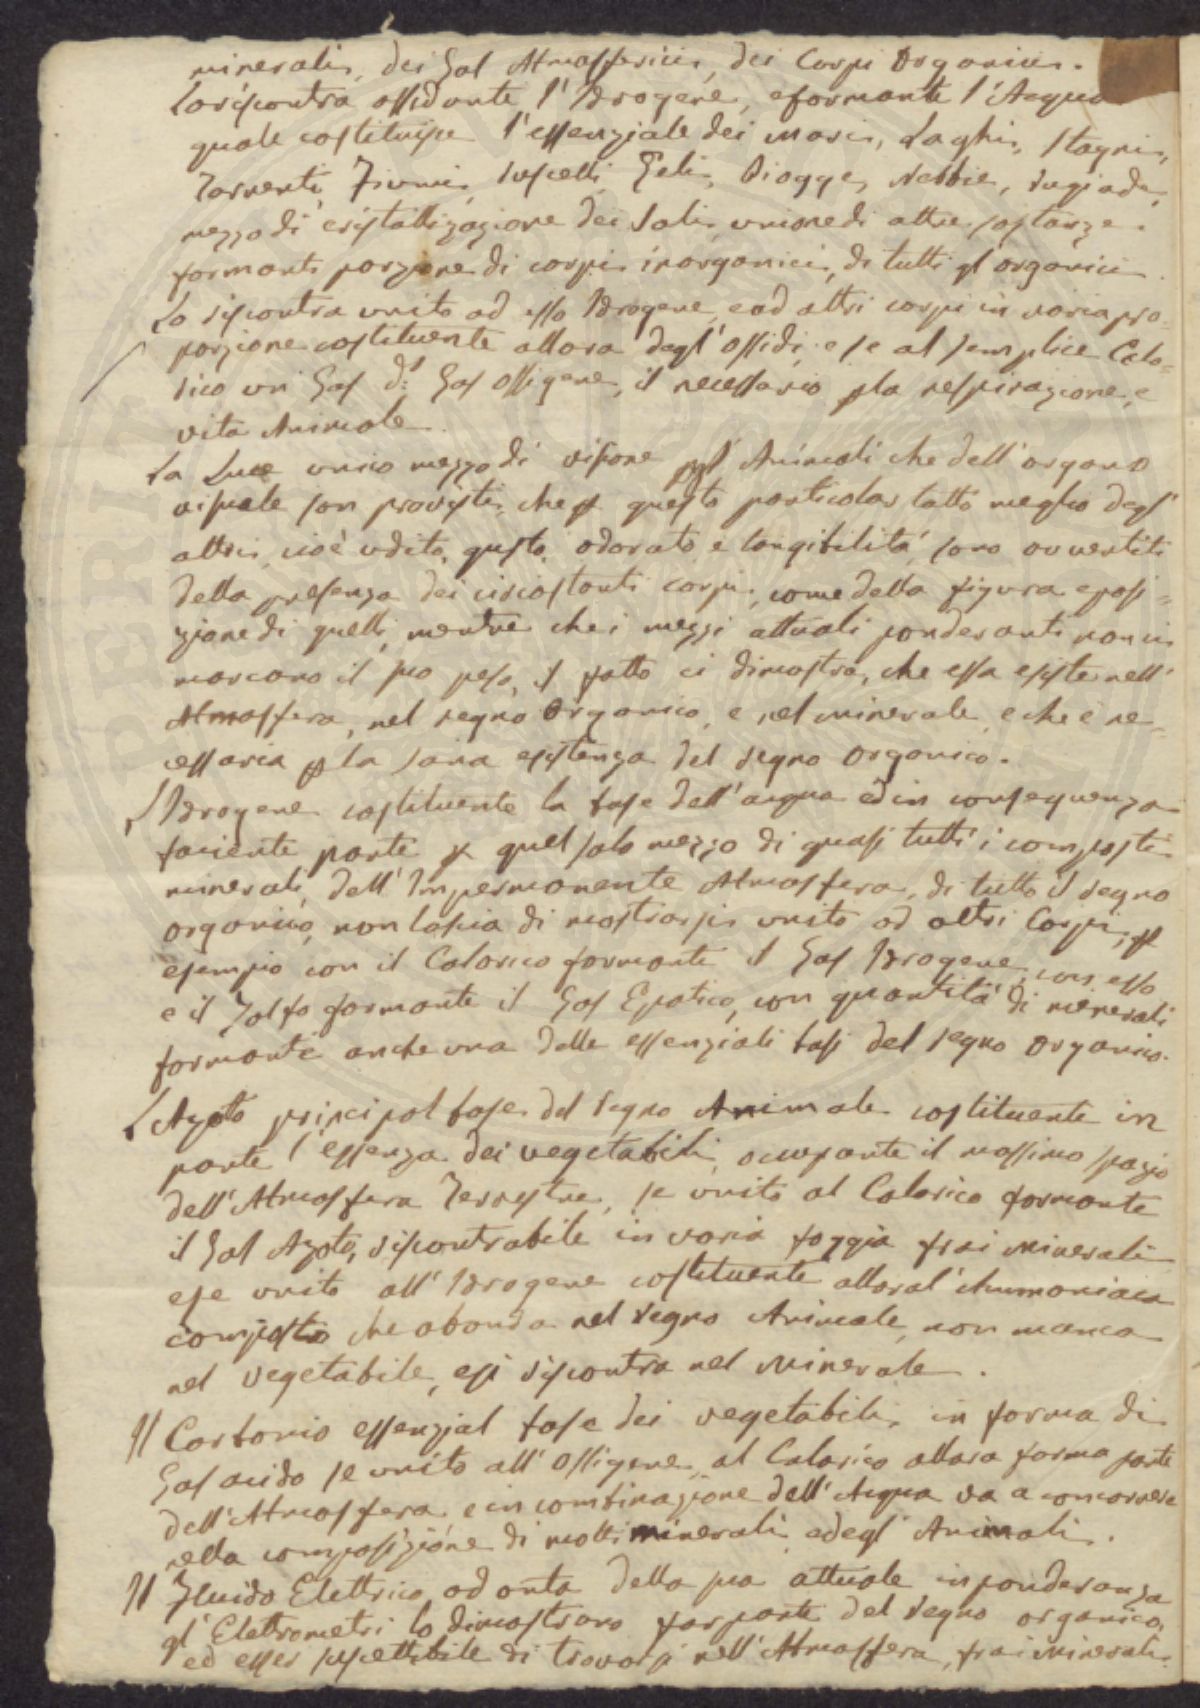 minerali, dei Gas Atmosferici, dei Corpi Organici.
Lo riscontra ossidante l'Idrogene, e formante l'Acqua
quale costituisce l'essenziale dei mari, Laghi, Stagni,
Torrenti, Fiumi, ruscelli, Geli, Piogge, Nebbie, rugiade,
mezzo di cristallizazione dei Sali, unione di altre sostanze
formanti porzione di corpi inorganici, di tutti gl'organici.
Lo riscontra unito ad esso Idrogene, e ad altri corpi in varia pro=
porzione costituente allora degl'ossidi, e se al semplice Calo=
rico un Gas d.º Gas ossigene, il necessario p la respirazione, e
vita Animale.
La Luce unico mezzo di visione p gl'Animali che dell'organo
visuale son provisti, che p questo particolar tatto meglio degl'
altri, cioè udito, gusto, odorato e tangibilità, sono avvertiti
della presenza dei circostanti corpi, come della figura e posi=
zione di quelli, mentre che i mezzi attuali ponderanti non ci
marcano il suo peso, il fatto ci dimostra, che essa esiste nell'
Atmosfera, nel regno Organico, e nel Minerale, e che è ne=
cessaria p la sana esistenza del regno Organico.
L'Idrogene costituente la base dell'acqua ed in consequenza
faciente parte p quel solo mezzo di quasi tutti i composti
minerali, dell'Impermanente Atmosfera, di tutto il regno
organico, non lascia di mostrarsi unito ad altri Corpi, p
esempio con il Calorico formante il Gas Idrogene, con esso
e il Zolfo formante il Gas Epatico, con quantità di minerali
formante anche una delle essenziali basi del regno Organico.
L'Azoto principal base del regno Animale costituente in
parte l'essenza dei vegetabili, occupante il massimo spazio
dell'Atmosfera Terrestre, se unito al Calorico formante
il Gas Azoto, riscontrabile in varia foggia frai Minerali
e se unito all'Idrogene costituente allora l'Ammoniaca
composto che abonda nel regno Animale, non manca
nel vegetabile, e si riscontra nel Minerale.
Il Carbonio essenzial base dei vegetabili, in forma di
Gas acido se unito all'ossigene, al Calorico allora forma parte
dell'Atmosfera, e in combinazione dell'Acqua va a concorrere
nella composizione di molti minerali, e degl'Animali.
Il Fluido Elettrico, ad onta della sua attuale inponderanza
gl'Elettrometri lo dimostrano far parte del regno organico,
ed esser suscettibile di trovarsi nell'Atmosfera, frai Minerali.